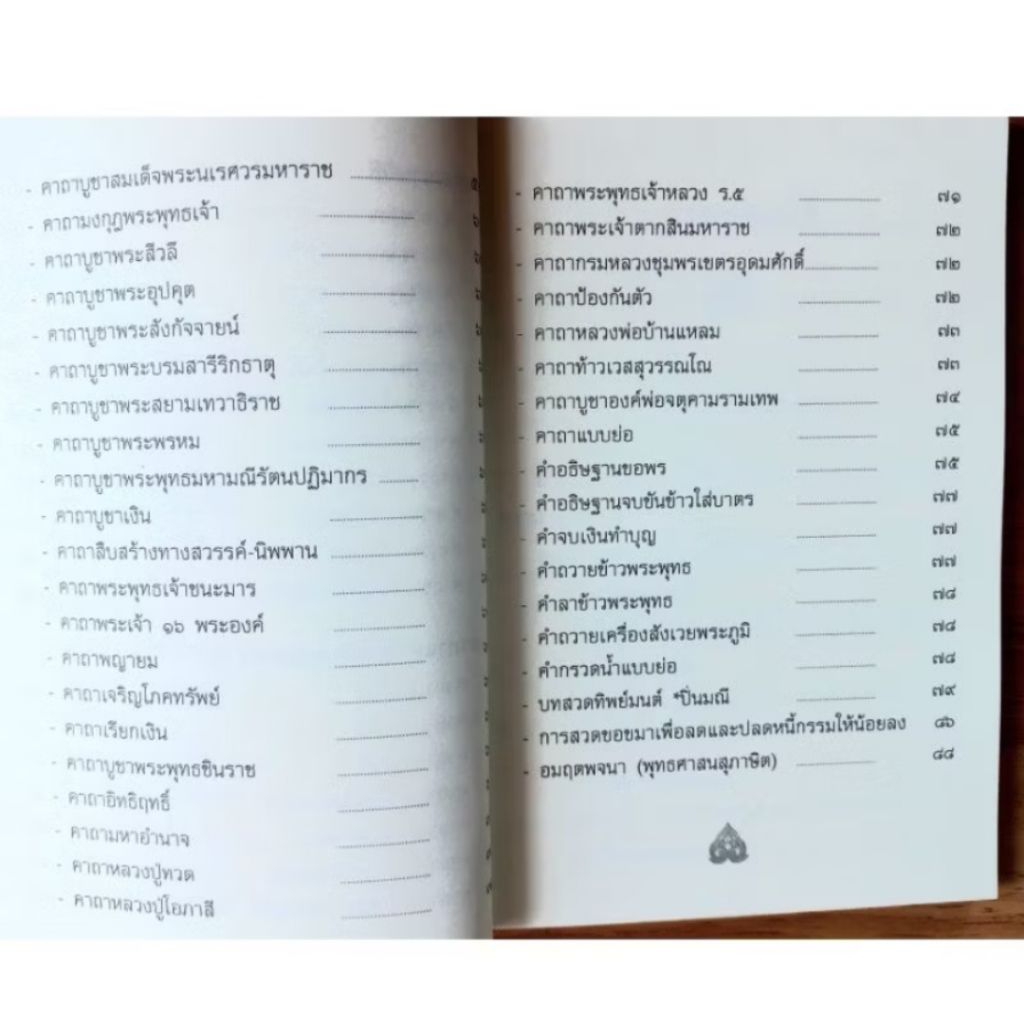 - คาถาบูชาสมเด็จพระนเรศวรมหาราช
- คาถามงกุฎพระพุทธเจ้า
- คาถาบูชาพระสีวลี
- คาถาบูชาพระอุปคุต
- คาถาบูชาพระสังกัจจายน์
- คาถาบูชาพระบรมสารีริกธาตุ
- คาถาบูชาพระสยามเทวาธิราช
- คาถาบูชาพระพรหม
- คาถาบูชาพระพุทธมหามณีรัตนปฏิมากร
- คาถาบูชาเงิน
- คาถาสืบสร้างทางสวรรค์-นิพพาน
- คาถาพระพุทธเจ้าชนะมาร
- คาถาพระเจ้า ๑๖ พระองค์
- คาถาพญายม
- คาถาเจริญโภคทรัพย์
- คาถาเรียกเงิน
- คาถาบูชาพระพุทธชินราช
- คาถาอิทธิฤทธิ์
- คาถามหาอำนาจ
- คาถาหลวงปู่ทวด
- คาถาหลวงปู่โอภาสี
- คาถาพระพุทธเจ้าหลวง ร.๕ ๗๑
- คาถาพระเจ้าตากสินมหาราช ๗๒
- คาถากรมหลวงชุมพรเขตรอุดมศักดิ์ ๗๒
- คาถาป้องกันตัว ๗๒
- คาถาหลวงพ่อบ้านแหลม ๗๓
- คาถาท้าวเวสสุวรรณโณ ๗๓
- คาถาบูชาองค์พ่อจตุคามรามเทพ ๗๔
- คาถาแบบย่อ ๗๕
- คำอธิษฐานขอพร ๗๕
- คำอธิษฐานจบขันข้าวใส่บาตร ๗๗
- คำจบเงินทำบุญ ๗๗
- คำถวายข้าวพระพุทธ ๗๗
- คำลาข้าวพระพุทธ ๗๘
- คำถวายเครื่องสังเวยพระภูมิ ๗๘
- คำกรวดน้ำแบบย่อ ๗๘
- บทสวดทิพย์มนต์ "ปิ่นมณี ๗๙
- การสวดขอขมาเพื่อลดและปลดหนี้กรรมให้น้อยลง ๘๖
- อมฤตพจนา (พุทธศาสนสุภาษิต) ๘๘